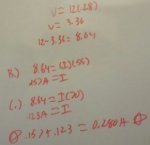 V = 12(.28)
V = 3.36
12 - 3.36 = 8.64
B.) 8.64 = (I)(55)
.157A = I
C.) 8.64 = I(70)
.123A = I
.157 + .123 = 0.280A